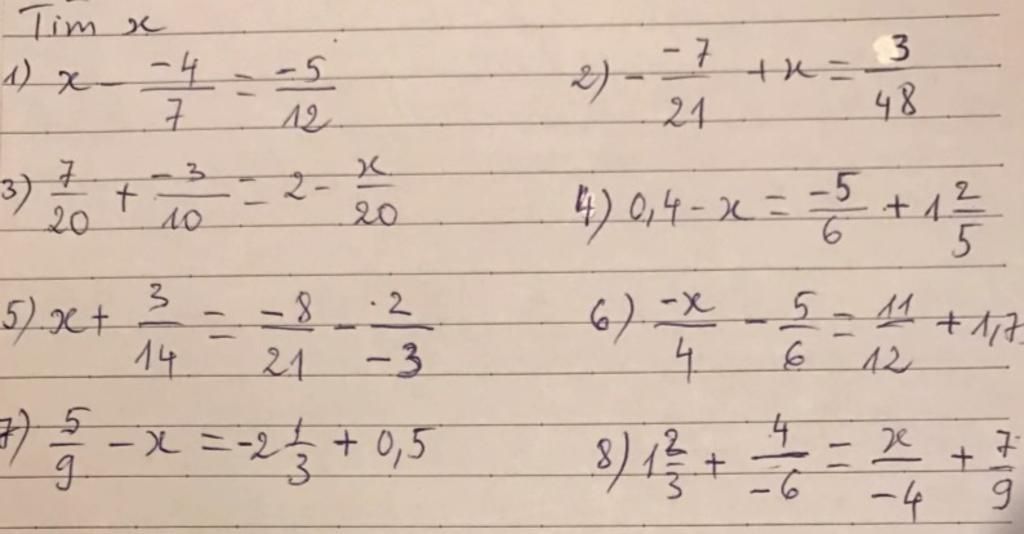 Tìm x
1) x - \frac{-4}{7} = \frac{-5}{12}
2) - \frac{-7}{21} + x = \frac{3}{48}
3) \frac{7}{20} + \frac{-3}{10} = 2 - \frac{x}{20}
4) 0,4 - x = \frac{-5}{6} + 1\frac{2}{5}
5) x + \frac{3}{14} = \frac{-8}{21} - \frac{2}{-3}
6) \frac{-x}{4} - \frac{5}{6} = \frac{11}{12} + 1,7
7) \frac{5}{9} - x = -2\frac{1}{3} + 0,5
8) 1\frac{2}{3} + \frac{4}{-6} = \frac{x}{-4} + \frac{7}{9}